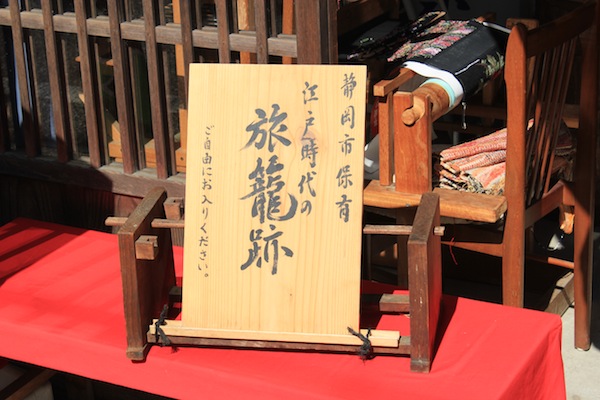 静岡市保有
江戸時代の
旅籠跡
ご自由にお入りください。